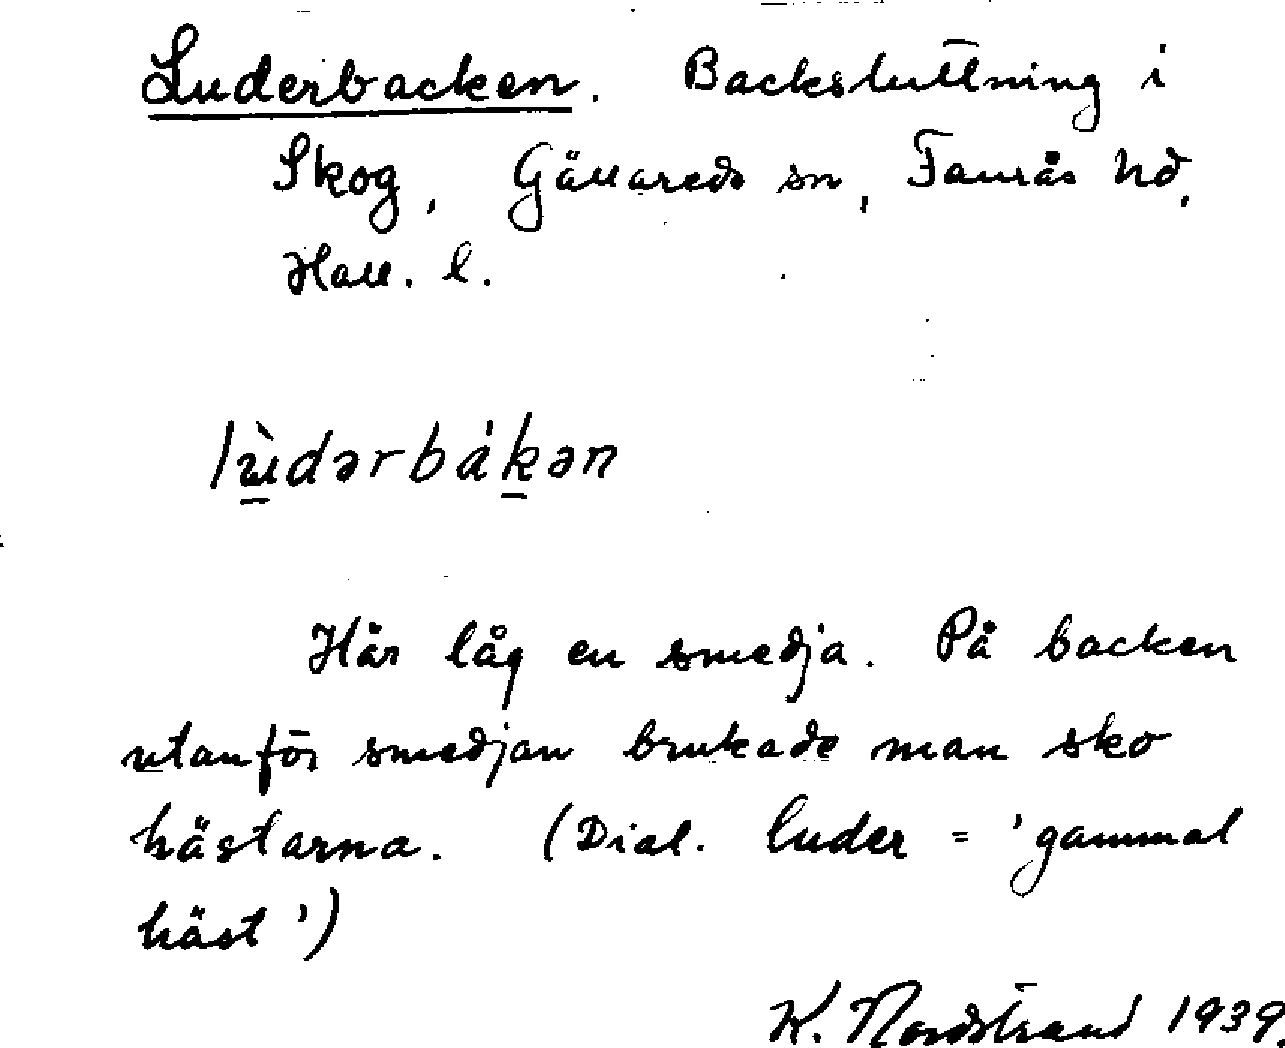 Luderbacken. Backsluttning i
Skog, Gällareds sn, Faurås hd,
Hall. l.
lùdərbákən
Här låg en smedja. På backen
utanför smedjan brukade man sko
hästarna. (Dial. luder = 'gammal
häst')
K. Nordstrand 1939.